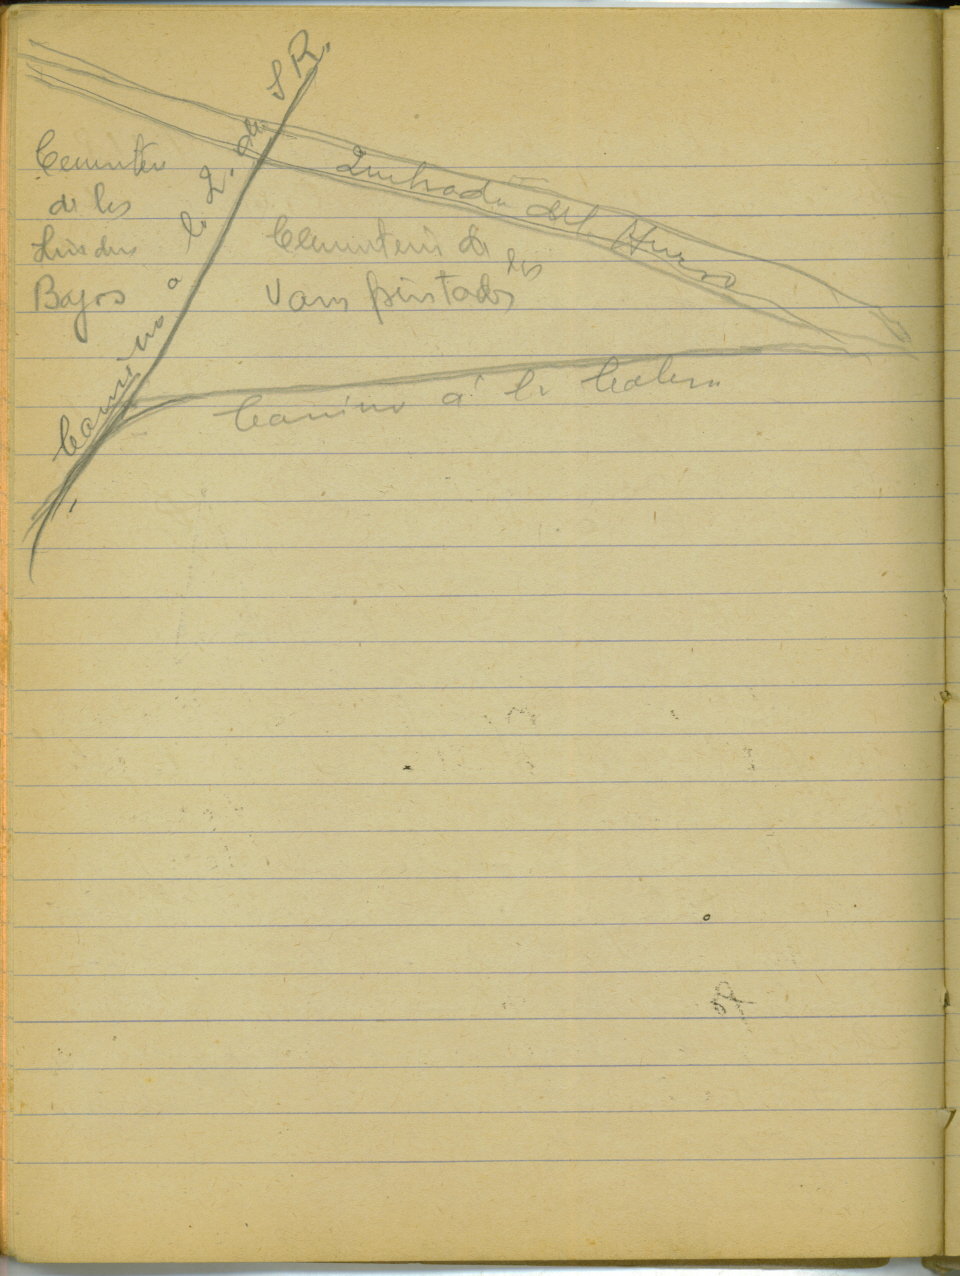 Camino a la Q. de S R.
Quebrada del Hueso
Cementerio
de los
Bajos
Cementerio de los
Vasos pintados
Camino á la Calera